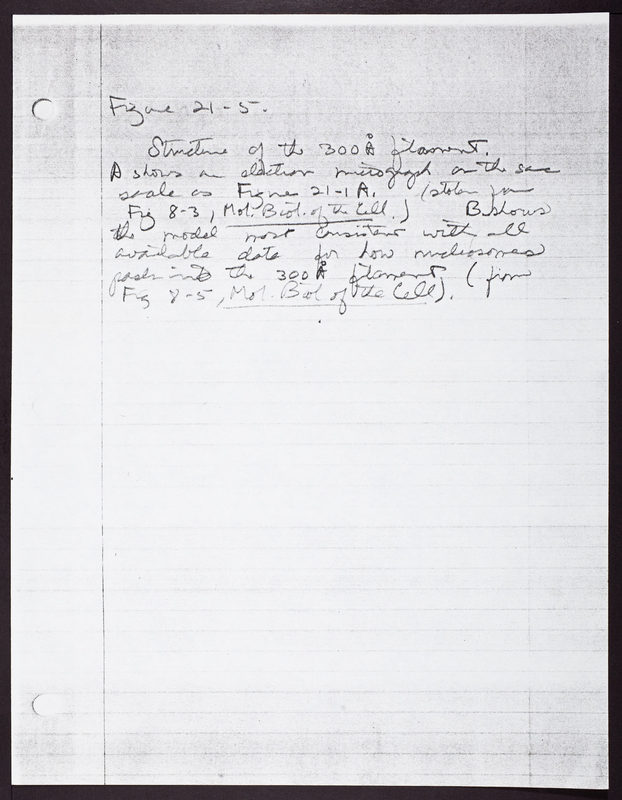 Figure 21-5.
Structure of the 300Å filament.
A shows an electron micrograph on the same
scale as Figure 21-1A. (stolen from
Fig 8-3, Mol. Biol. of the Cell.) B. shows
the model most consistent with all
available data for how nucleosomes
pack into the 300Å filament (from
Fig 8-5, Mol. Biol of the Cell).